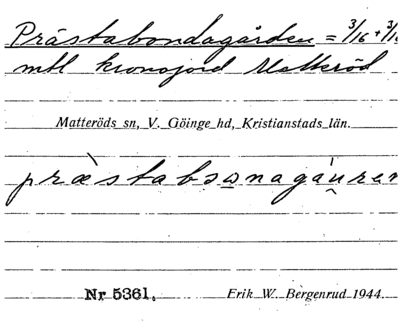 Prästabondagården = 3/16 + 3/16
mtl kronojord Matteröd
Matteröds sn, V. Göinge hd, Kristianstads län.
præ̀stabɔω̲nagáu̯ren
Nr 5361. Erik W. Bergenrud 1944.